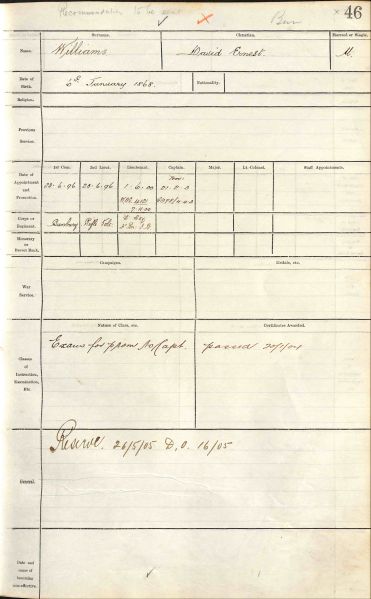 Recommendation to be sent
46
Surname.
Christian.
Married or Single.
Name.
Williams
David Ernest.
M.
Date of Birth.
6th January 1868.
Nationality.
Religion.
Previous Service.
1st Com.
2nd Lieut.
Lieutenant.
Captain.
Major.
Lt.-Colonel.
Staff Appointments.
Date of Appointment and Promotion.
23.6.96
23.6.96
1.6.00
Corps or Regiment.
Bunbury
Rifle Vols.
Honorary or Brevet Rank.
Campaigns.
Medals, etc.
War Service.
Nature of Class, etc.
Certificates Awarded.
Classes of Instruction, Examination, Etc.
Exam for prom to Capt.
passed 20/1/04
General.
Reserve. 26/5/05 D.O. 16/05
Date and cause of becoming non-effective.